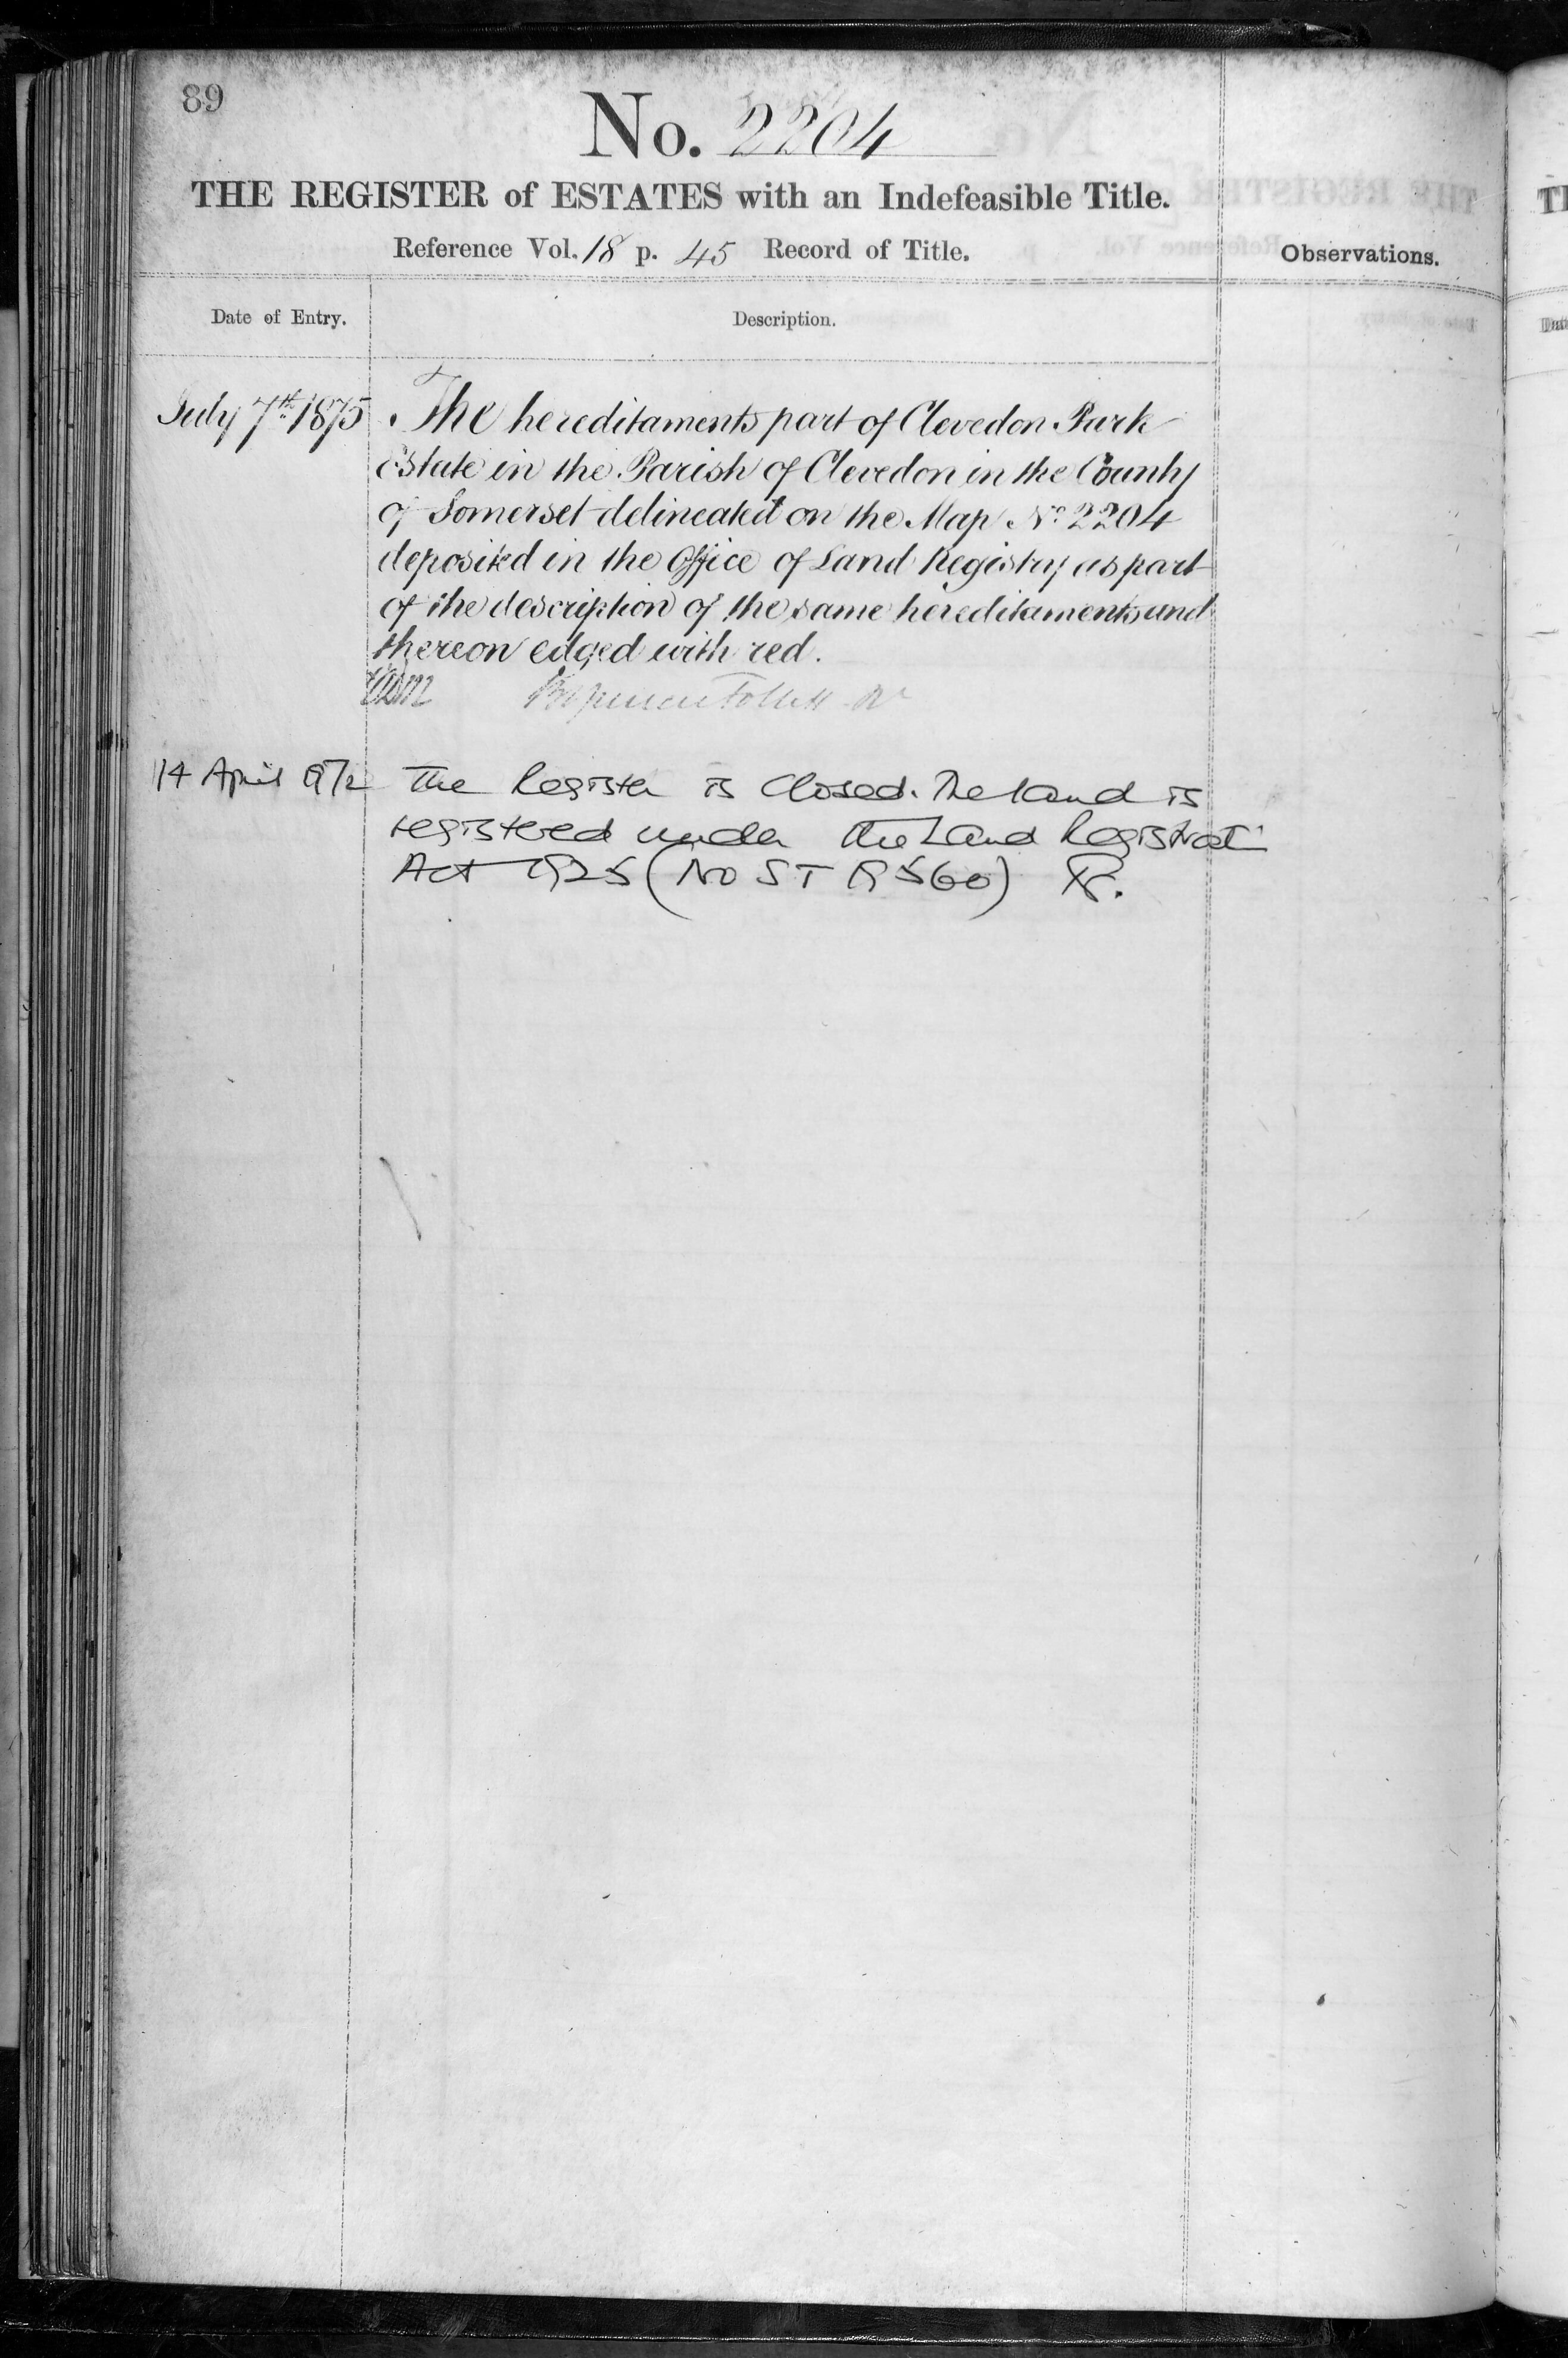 89
No. 2204
THE REGISTER of ESTATES with an Indefeasible Title.
Reference Vol. 18 p. 45 Record of Title.
Observations.
Date of Entry.
Description.
July 7th 1875
The hereditaments part of Clevedon Park
Estate in the Parish of Clevedon in the County
of Somerset delineated on the Map No 2204
deposited in the Office of Land Registry as part
of the description of the same hereditaments and
thereon edged with red.
Follett
14 April 1972
The Register is closed. The land is
registered under the Land Registrat
Act 1925 (No ST 19560)